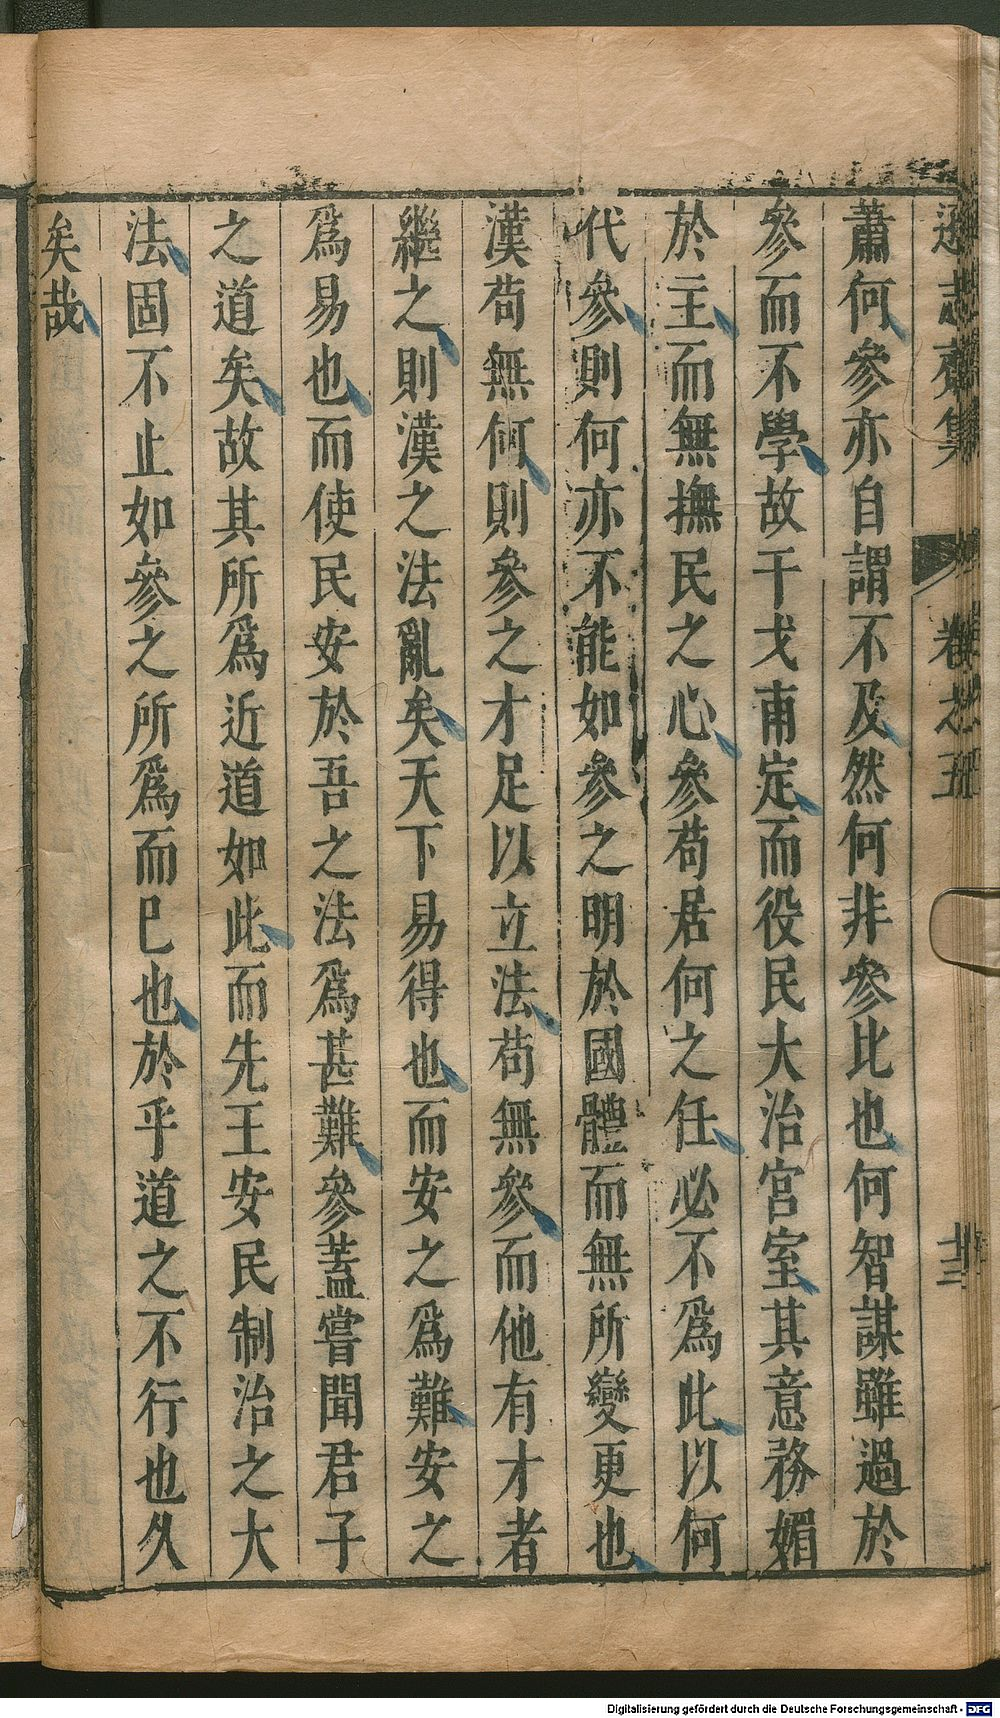 遜志齋集 卷之五 十三
蕭何參亦自謂不及然何非參比也何智謀雖過於
參而不學故干戈甫定而役民大治宮室其意務媚
於主而無撫民之心參苟居何之任必不爲此以何
代參則何亦不能如參之明於國體而無所變更也
漢苟無何則參之才足以立法苟無參而他有才者
繼之則漢之法亂矣天下易得也而安之爲難安之
爲易也而使民安於吾之法爲甚難參蓋嘗聞君子
之道矣故其所爲近道如此而先王安民制治之大
法固不止如參之所爲而巳也於乎道之不行也久
矣哉
Digitalisierung gefördert durch die Deutsche Forschungsgemeinschaft - DFG